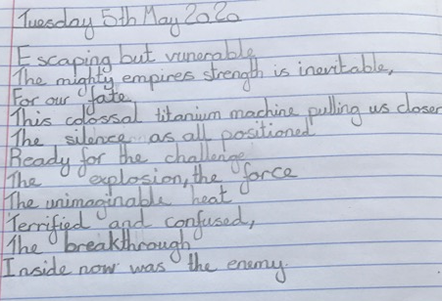 Tuesday 5th May 2020
Escaping but vunerable
The mighty empires strength is inevitable,
For our fate
This colossal titanium machine pulling us closer
The silence as all positioned
Ready for the challenge
The explosion, the force
The unimaginable heat
Terrified and confused,
The breakthrough
Inside now was the enemy.